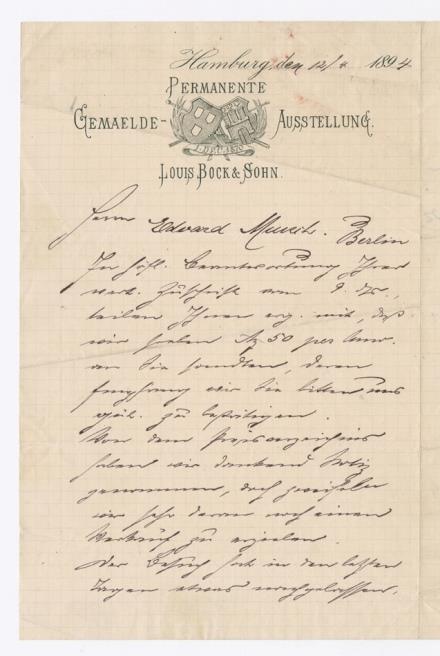 Hamburg, den 12/4 1894
PERMANENTE
GEMAELDE- AUSSTELLUNG.
1. DEC. 1870
LOUIS BOCK & SOHN.
Herrn Edvard Munch. Berlin
In höfl. Beantwortung Ihrer
wert. Zuschrift vom 9. ds.,
teilen Ihnen erg. mit, daß
wir soeben 50 per
an Sie sandten, deren
Empfang wir Sie bitten uns
güt. zu bestätigen.
Von dem Preisverzeichnis
haben wir dankend Notiz
genommen, doch zweifeln
wir sehr daran noch einen
Verkauf zu erzielen.
Der Besuch hat in den letzten
Tagen etwas nachgelassen,